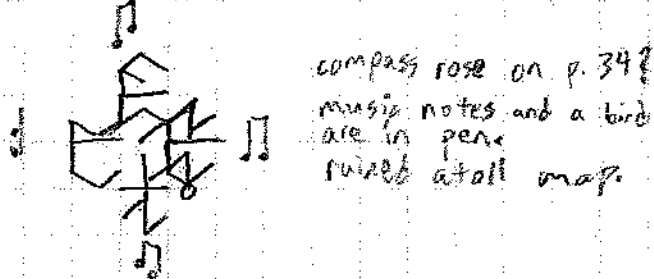 compass rose on p. 34?
music notes and a bird
are in pen.
ruined atoll map.